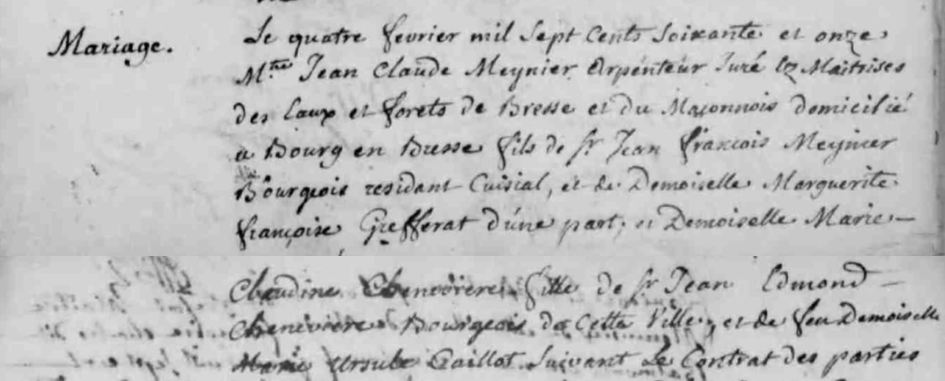 Mariage.
Le quatre fevrier mil Sept Cents Soixante et onze
M.tre Jean Claude Meynier Arpenteur Juré ez Maitrises
des Eaux et forets de Bresse et du Maconnois domicilié
a Bourg en Bresse fils de Sr Jean francois Meynier
Bourgeois residant Cuisial, et de Demoiselle Marguerite
françoise Grefferat d'une part, et Demoiselle Marie-
Claudine Cheneviere fille de Sr Jean Edmond -
Cheneviere Bourgeois de Cette Ville, et de feu Demoiselle
Marie Ursule Gaillot Suivant Le Contrat des parties